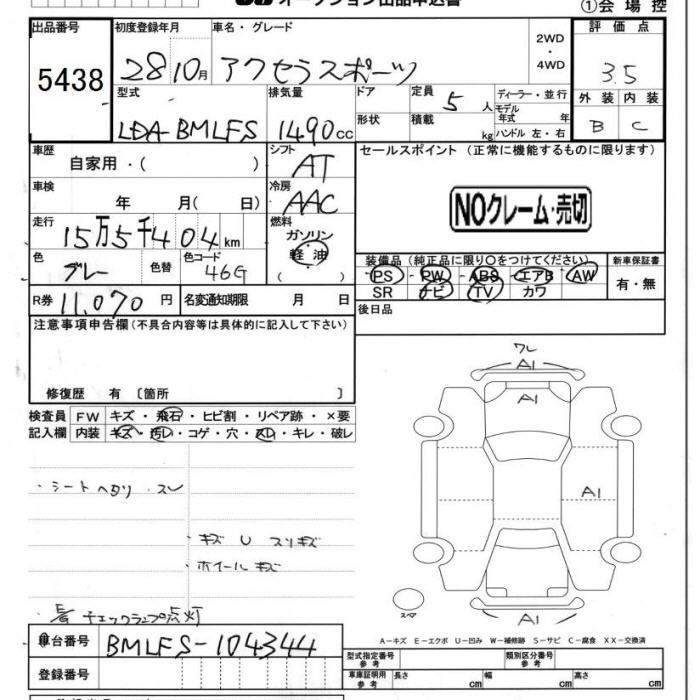 オークション出品申込書
①会場控
出品番号 初度登録年月 車名・グレード 2WD・4WD 評価点
5438 28 10月 アクセラスポーツ 3.5
型式 排気量 ドア 定員 5人 ディーラー・並行 外装 内装
モデル年式 年
LDA-BMLFS 1490cc 形状 積載 kg ハンドル 左・右 B C
車歴 シフト セールスポイント (正常に機能するものに限ります)
自家用・( ) AT
車検 冷房
年 月( 日) AAC NOクレーム・売切
走行 燃料
15万5千404km ガソリン
軽油
( )
色 色替 色コード 装備品(純正品に限り○をつけてください) 新車保証書
グレー 46G PS PW ABS エアB AW 有・無
SR ナビ TV カワ
R券 11,070円 名変通知期限 月 日 後日品
注意事項申告欄(不具合内容等は具体的に記入して下さい)
修復歴 有 〔箇所 〕
検査員 FW キズ・飛石・ヒビ割・リペア跡・×要
記入欄 内装 キズ・汚レ・コゲ・穴・スレ・キレ・破レ
・シートヘタリ スレ
・キズ U スリキズ
・ホイールキズ
チェックランプ点灯
ワレ
A1
A1
A1
A1
スペア
A-キズ E-エクボ U-凹み W-補修跡 S-サビ C-腐食 XX-交換済
車台番号 BMLFS-104344
型式指定番号 参考 類別区分番号 参考
登録番号 車庫証明用 参考 長さ cm 幅 cm 高さ cm